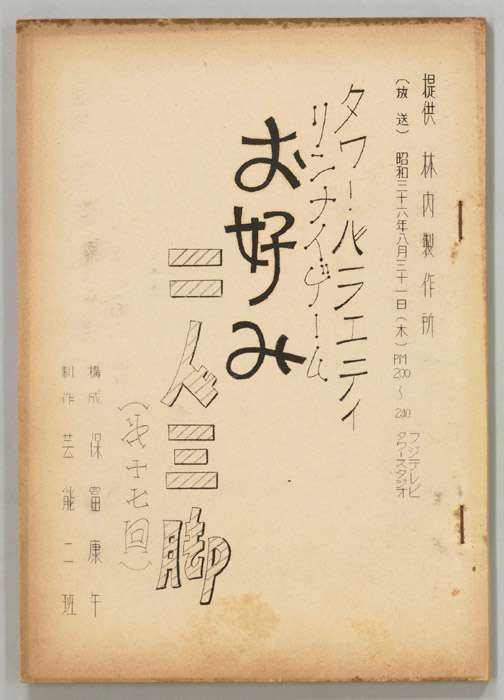 提供 林内製作所
(放送) 昭和三十六年八月三十一日(木) PM 200～240 フジテレビ
タワースタジオ
タワー・バラエティ
リンナイゲーム
お好み
二人三脚
(第十七回)
構成 保富康午
制作 芸能二班